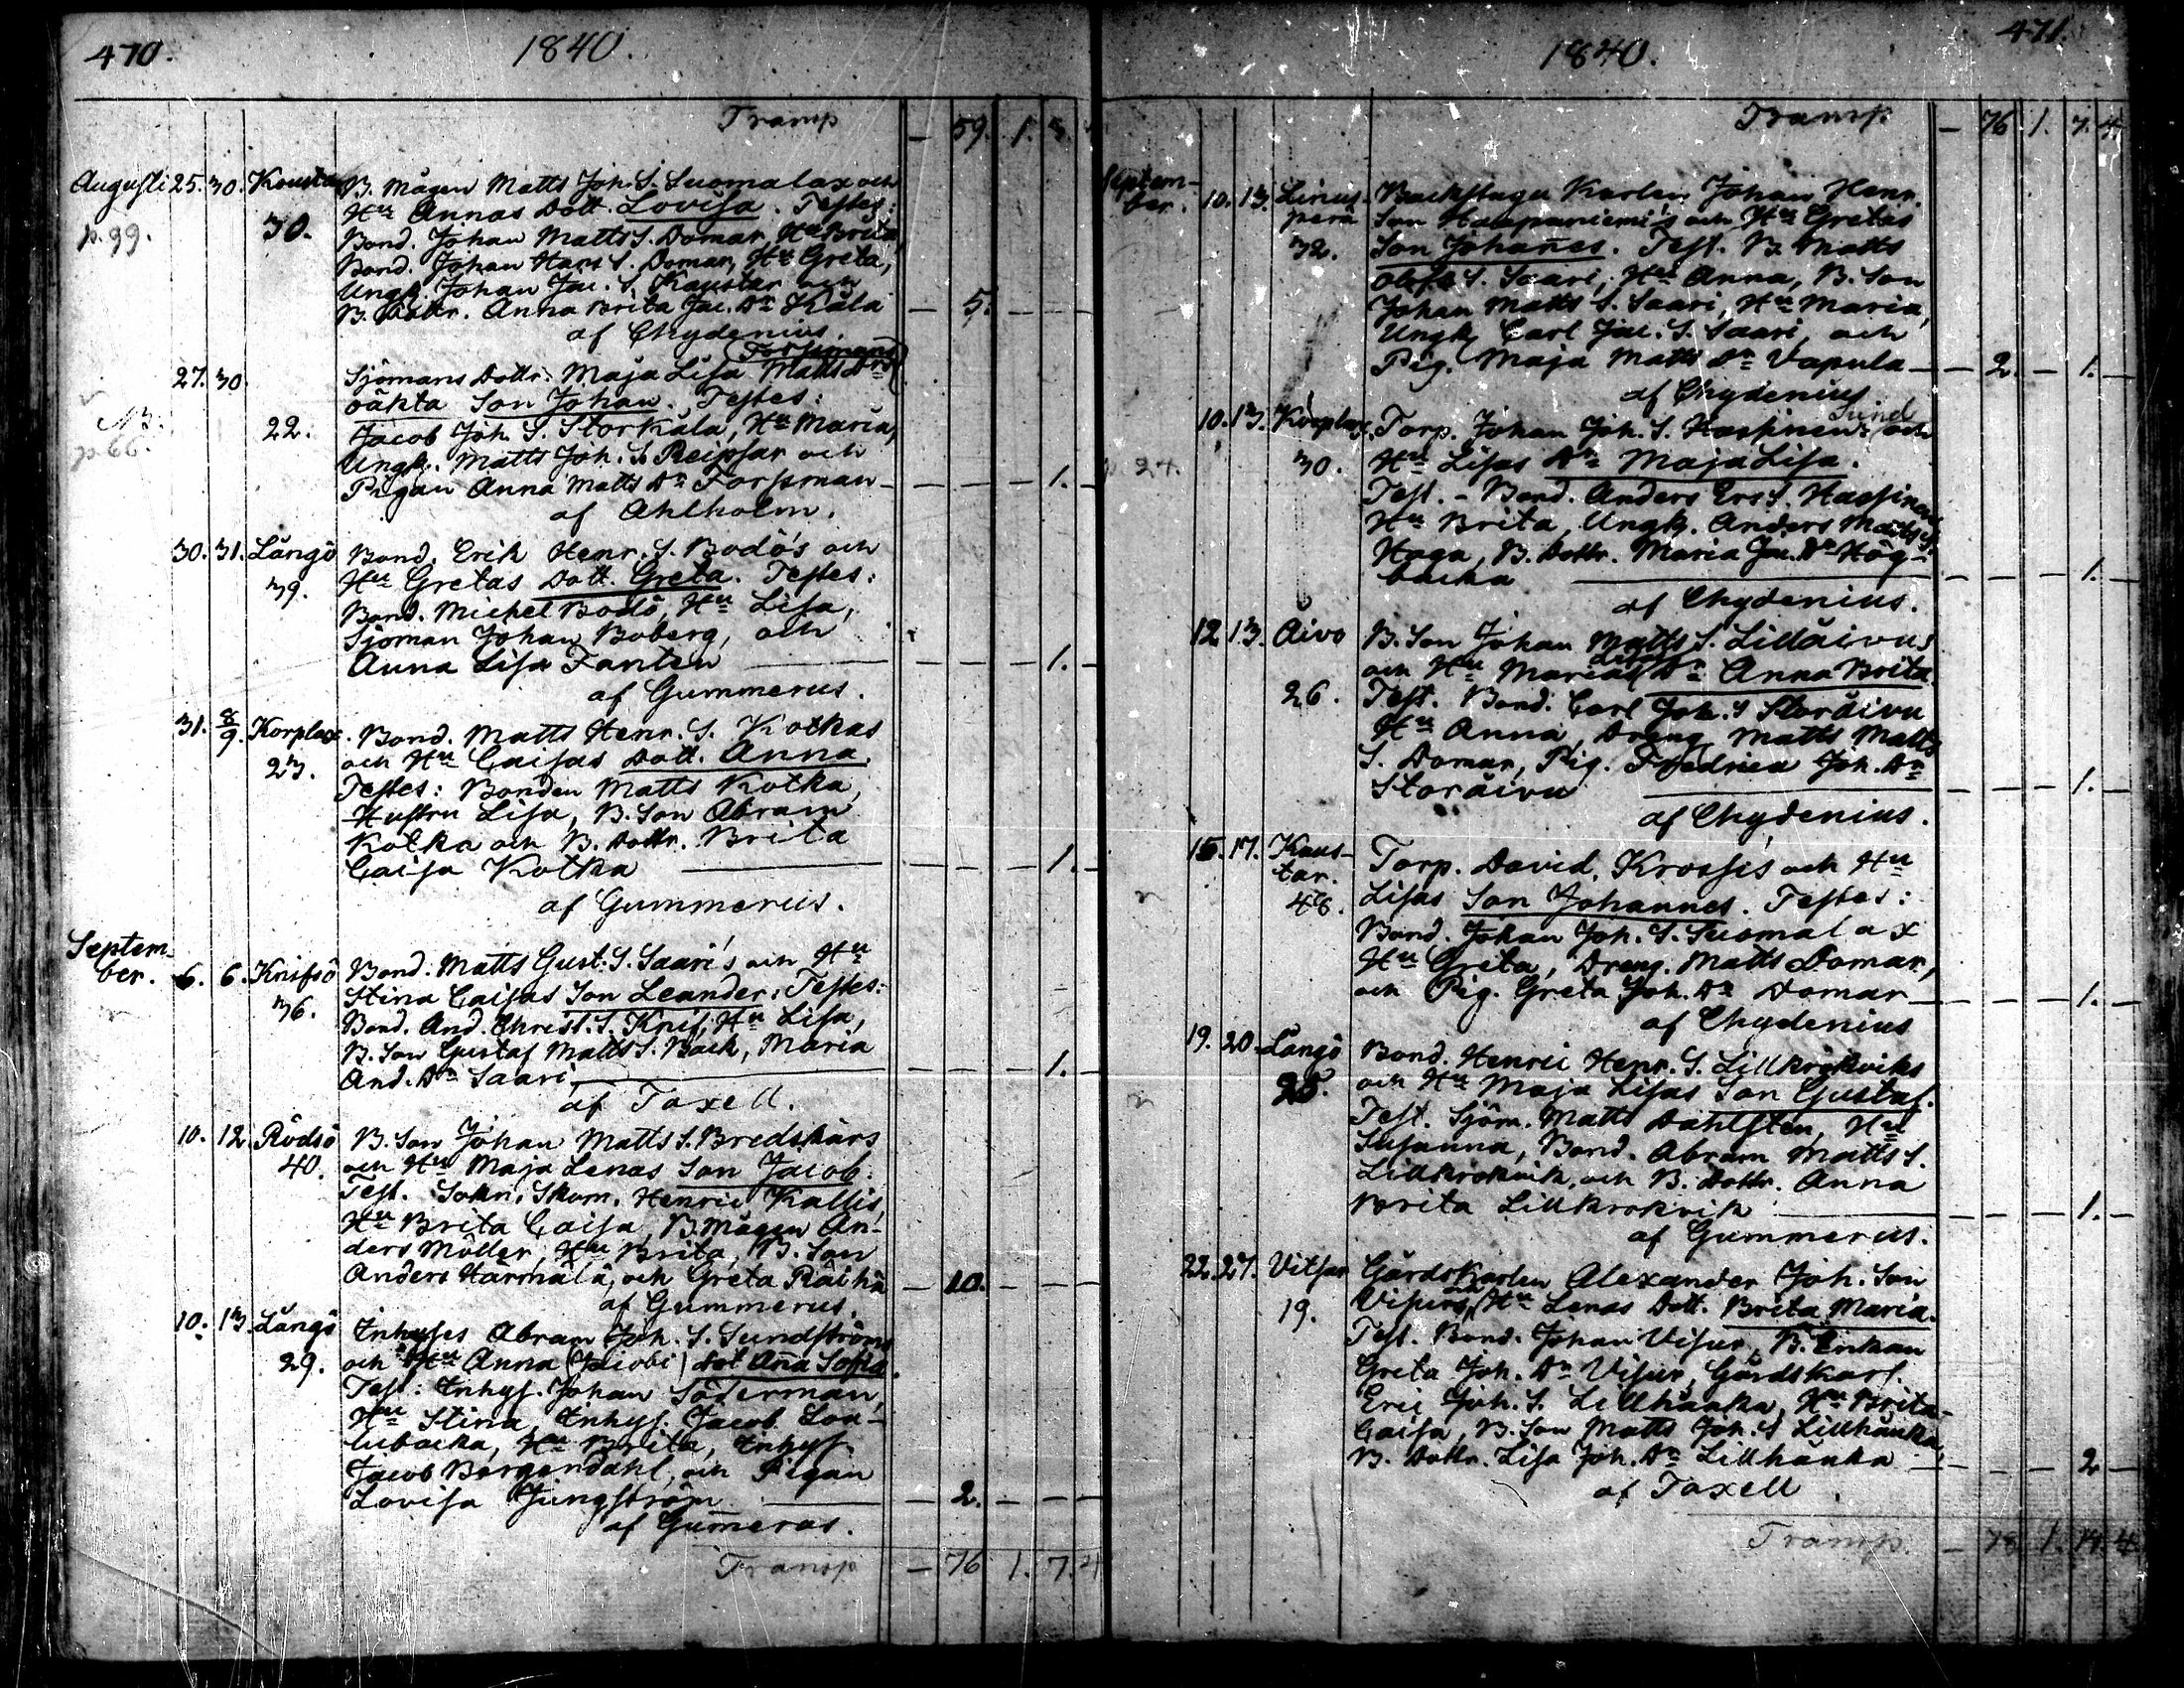 470. 1840.
Transp — 59. 1. 3.
Augusti 25. 30. Kousta B. Mågen Matts Joh. S. Suomalax och
Hu Annas Dott. Lovisa. Testes:
p. 99. 30. Bond. Johan Matts S. Domar, Hu Brita,
Bond. Johan Hans S. Domar, Hu Greta,
Ungk. Johan Jac. S. Kaustar och
B. Dottr. Anna Brita Jac. Dr Kåla — 5. — —
af Chydenius.
Forssmans
27. 30 Sjömans Dottr. Maja Lisa Matts Drs
oäkta Son Johan. Testes:
N3. 22. Jacob Joh. S. Storkåla, Hu Maria,
p. 66. Ungk. Matts Joh. S. Reipsar och
Pigan Anna Matts Dr Forssman — — — 1. —
af Ahlholm.
30. 31. Långö Bond. Erik Henr. S. Bodö's och
39. Hu Gretas Dott. Greta. Testes:
Bond. Michel Bodö, Hu Lisa,
Sjöman Johan Boberg, och
Anna Lisa Fanten — — — 1. —
af Gummerus.
31. 8/9. Korplax. Bond. Matts Henr. S. Kotkas
23. och Hu Caisas Dott. Anna.
Testes: Bonden Matts Kotka,
Hustru Lisa, B. Son Abram
Kotka och B. Dottr. Brita
Caisa Kotka — — — 1. —
af Gummerus.
Septem-
ber. 6. 6. Knifsö Bond. Matts Gust. S. Saari's och Hu
36. Stina Caisas Son Leander: Testes:
Bond. And. Christ. S. Knif, Hu Lisa,
B. Son Gustaf Matts S. Back, Maria
And. Dr Saari — — — 1. —
af Taxell.
10. 12. Rödsö B. Son Johan Matts S. Bredskärs
40. och Hu Maja Lenas Son Jacob.
Test. Sokn. Skom. Henric Kallis,
Hu Brita Caisa, B. Mågen An-
ders Möller, Hu Brita, B. Son
Anders Härmälä, och Greta Räihä — 10. — — —
af Gummerus.
10. 13. Långö Inhyses Abram Joh. S. Sundströms
29. och Hu Anna (Jacobi) Dot Aña Sofia.
Test: Inhys. Johan Söderman,
Hu Stina, Inhys. Jacob Lou-
lubacka, Hu Brita, Inhys.
Jacob Bergendahl, och Pigan
Lovisa Ljungström — 2. — — —
af Gum̄erus.
Transp — 76 1. 7. 4
1840. 471.
Transp. — 76. 1. 7. 4.
Septem-
ber. 10. 13. Linus- Backstugu Karlen Johan Henr.
perä Son Haapaniemi's och Hu Gretas
32. Son Johañes. Test. B. Matts
Olofs S. Saari, Hu Anna, B. Son
Johan Matts S. Saari, Hu Maria,
Ungk. Carl Jac. S. Saari, och
Pig. Maja Matts Dr Vapula — 2. — 1. —
af Chydenius
10. 13. Korplax. Torp. Johan Joh. S. Hassinen Sund och
p. 24. 30. Hu Lisas Dr Maja Lisa.
Test. - Bond. Anders Ers S. Hassinen
Hu Brita, Ungk. Anders Matts S.
Haga, B. Dottr. Maria Jac. Dr Hög-
backa — — — 1. —
af Chydenius.
12 13. Åivo B. Son Johan Matts S. Lillåivus
och Hu Marias Dr Anna Brita.
26. Test. Bond. Carl Joh. S Storåivu
Hu Anna, Dreng Matts Matts
S. Domar, Pig. Fredrica Joh. Dr
Storåivu — — — 1. —
af Chydenius.
15. 17. Kaus- Torp. David Krossis och Hu
tar. Lisas Son Johannes. Testes:
46. Bond. Johan Joh. S. Suomalax
Hu Greta, Dreng. Matts Domar,
och Pig. Greta Joh. Dr Domar — — — 1. —
af Chydenius
19. 20. Långö Bond. Henric Henr. S. Lillkrokviks
25. och Hu Maja Lisas Son Gustaf.
Test. Sjöm. Matts Dahlsten, Hu
Susanna, Bond. Abram Matts S.
Lillkrokvik, och B. Dottr. Anna
Brita Lillkrokvik — — — 1. —
af Gummerus.
22. 27. Vitsar Gårdskarlen Alexander Joh. Son
19. Visurs, och Hu Lenas Dott. Brita Maria.
Test. Bond. Johan Visur, B. Enkan
Greta Joh. Dr Visur, Gårdskarl.
Eric Joh. S. Lillhånka, Hu Brita-
Caisa, B. Son Matts Joh. S Lillhånka,
B. Dottr. Lisa Joh. Dr Lillhånka — — — 2 —
af Taxell.
Transp. — 78. 1. 14. 4.